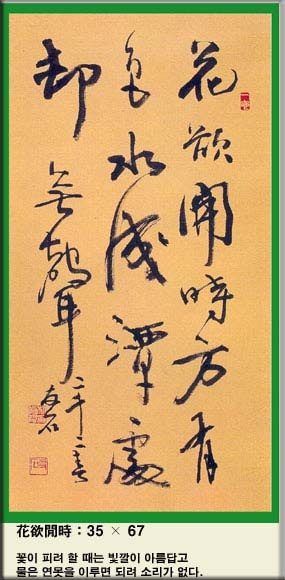 花欲開時方有
色水成潭處
却無聲
花欲閒時 : 35 × 67
꽃이 피려 할 때는 빛깔이 아름답고
물은 연못을 이루면 되려 소리가 없다.